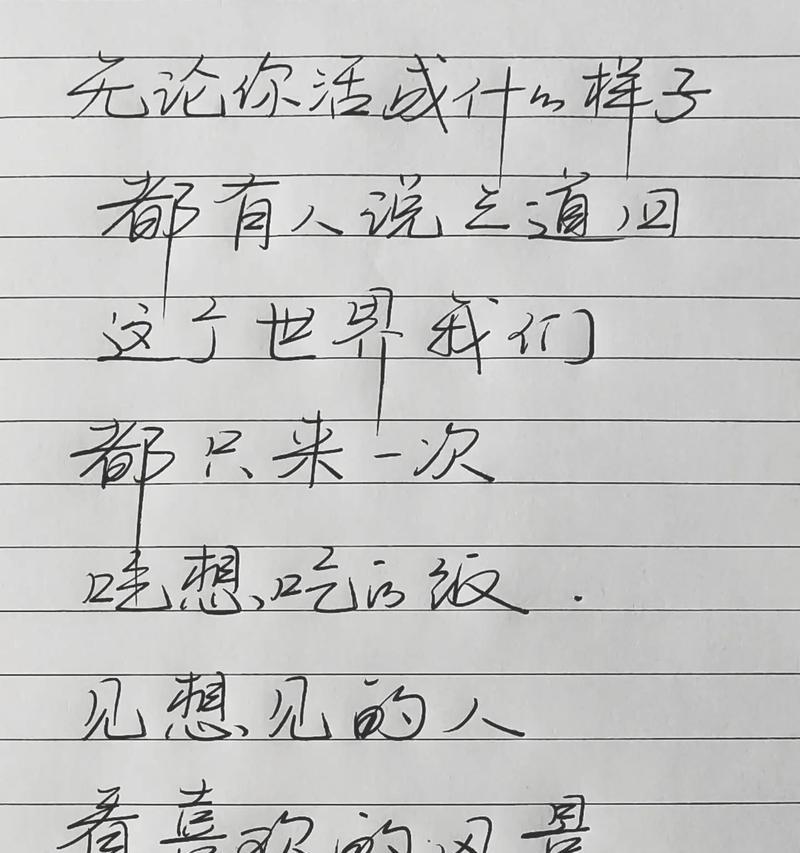 无论你活成什么样子
都有人说三道四
这个世界我们
都只来一次
吃想吃的饭.
见想见的人
看喜欢的风景